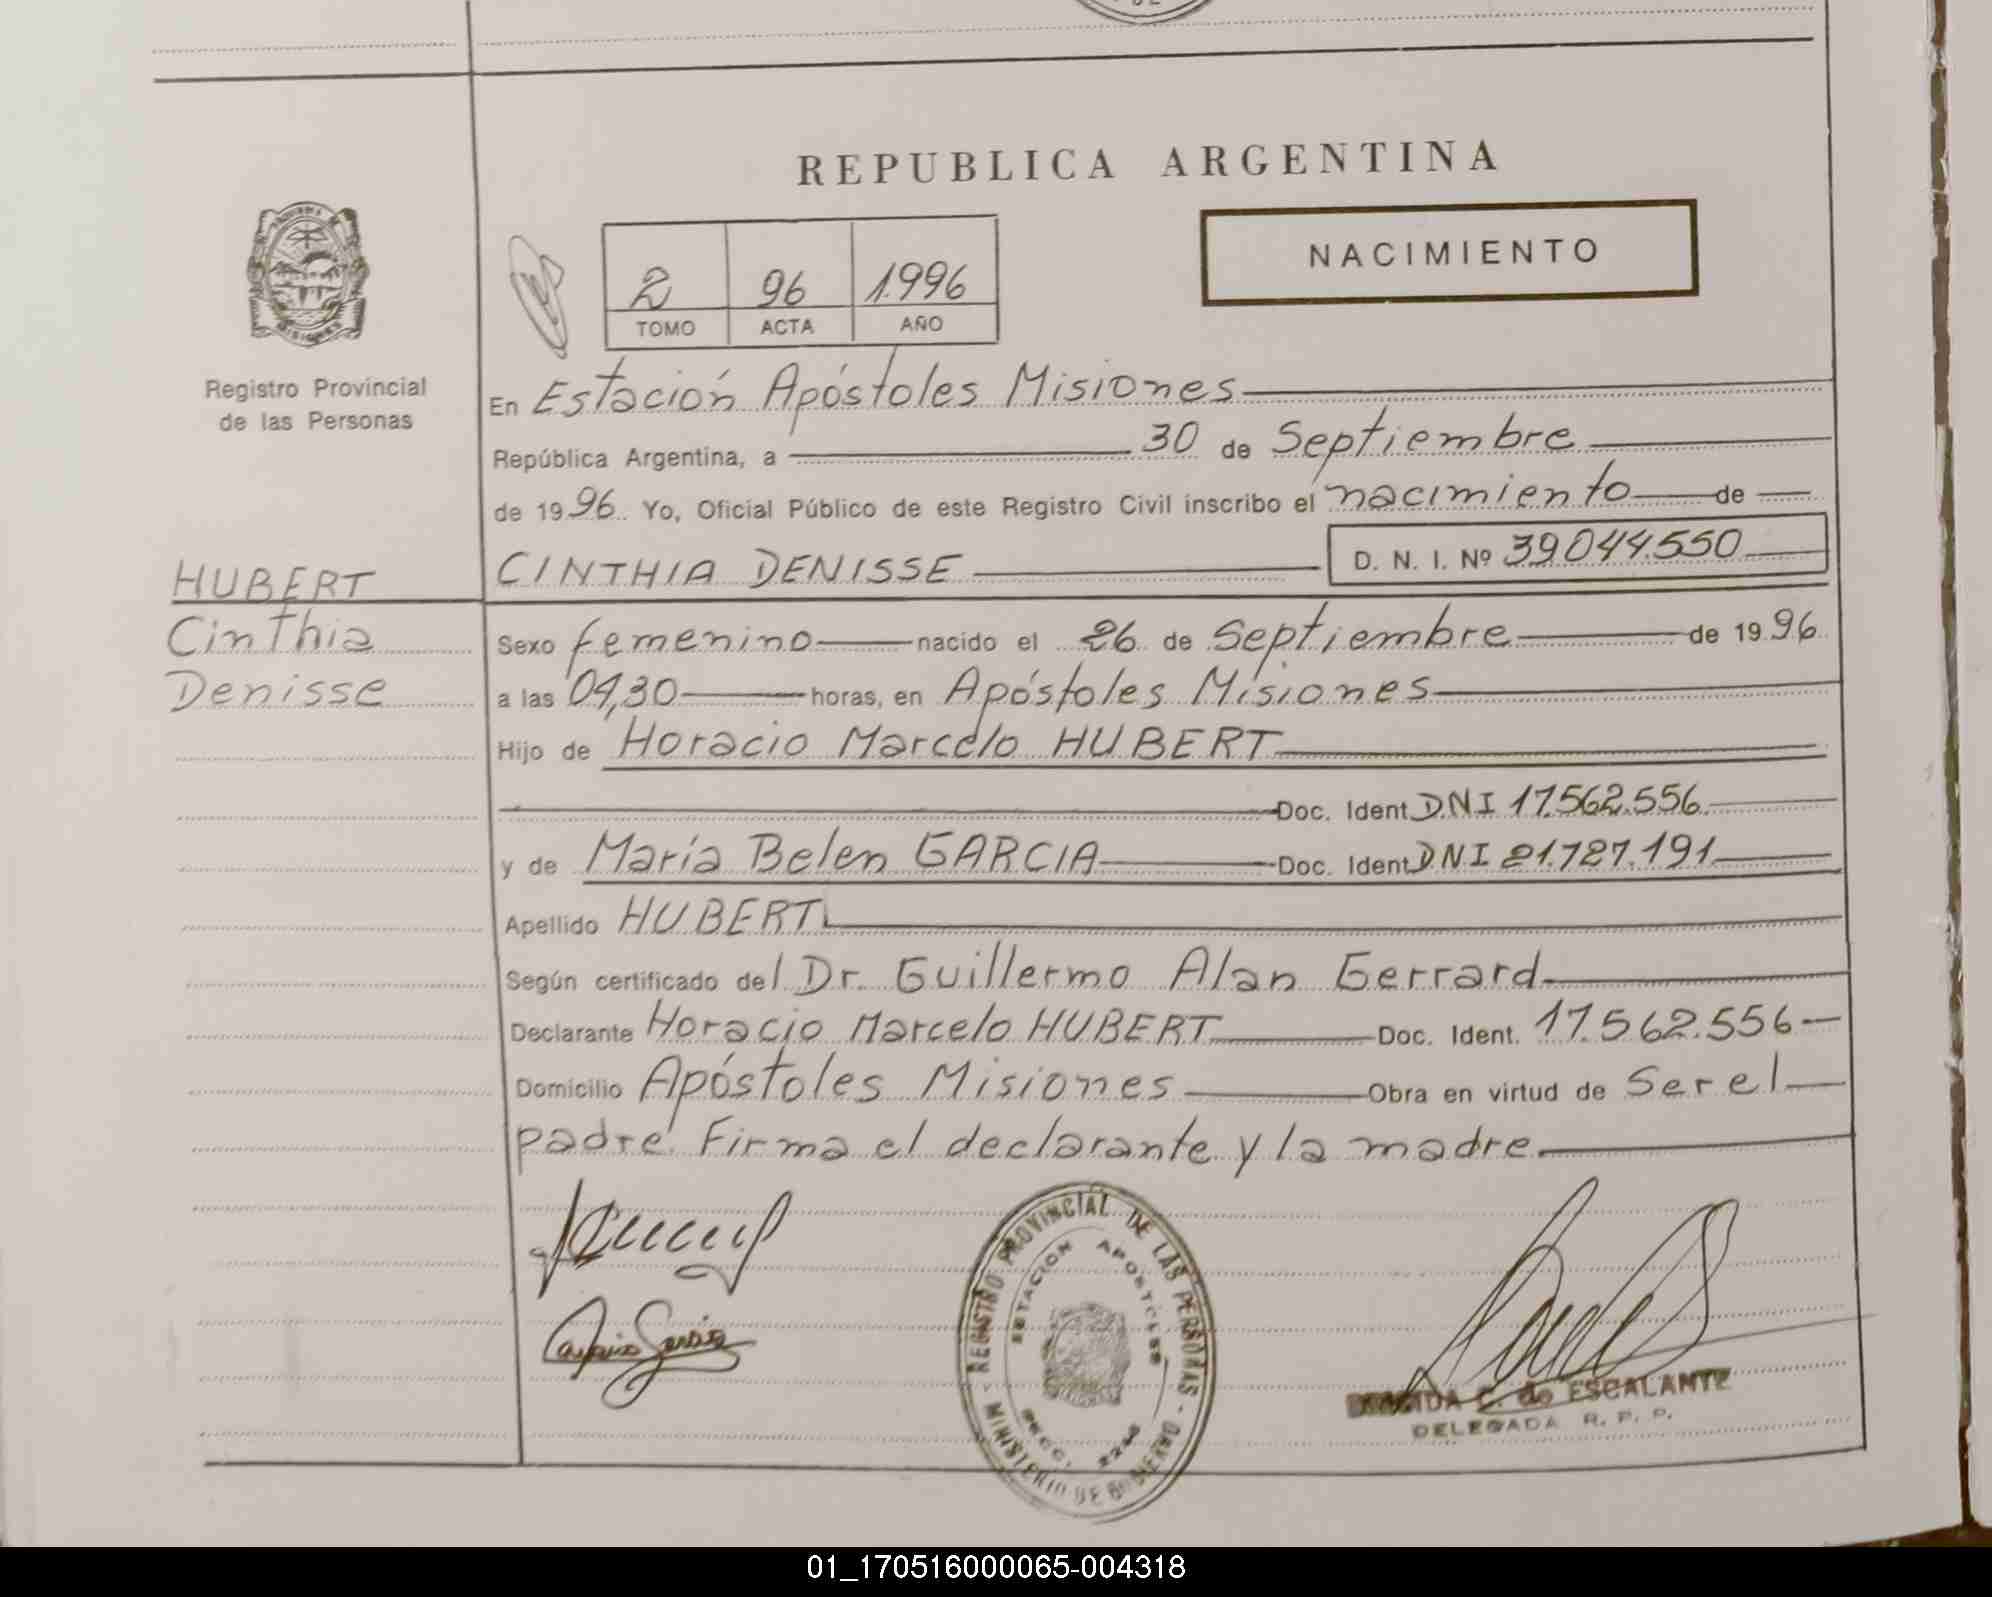 REPUBLICA ARGENTINA
NACIMIENTO
2 96 1.996
TOMO ACTA AÑO
Registro Provincial
de las Personas
En Estación Apóstoles Misiones
República Argentina, a 30 de Septiembre
de 1996. Yo, Oficial Público de este Registro Civil inscribo el nacimiento de
CINTHIA DENISSE D. N. I. Nº 39.044.550
HUBERT
Cinthia
Denisse
Sexo femenino nacido el 26 de Septiembre de 1996
a las 09,30 horas, en Apóstoles Misiones
Hijo de Horacio Marcelo HUBERT
Doc. Ident. DNI 17.562.556
y de María Belen GARCIA Doc. Ident. DNI 21.727.191
Apellido HUBERT
Según certificado del Dr. Guillermo Alan Gerrard
Declarante Horacio Marcelo HUBERT Doc. Ident. 17.562.556
Domicilio Apóstoles Misiones Obra en virtud de Ser el
padre. Firma el declarante y la madre
REGISTRO PROVINCIAL DE LAS PERSONAS
ESTACION APOSTOLES
MINISTERIO DE GOBIERNO
C. de ESCALANTE
DELEGADA R. P. P.
01_170516000065-004318